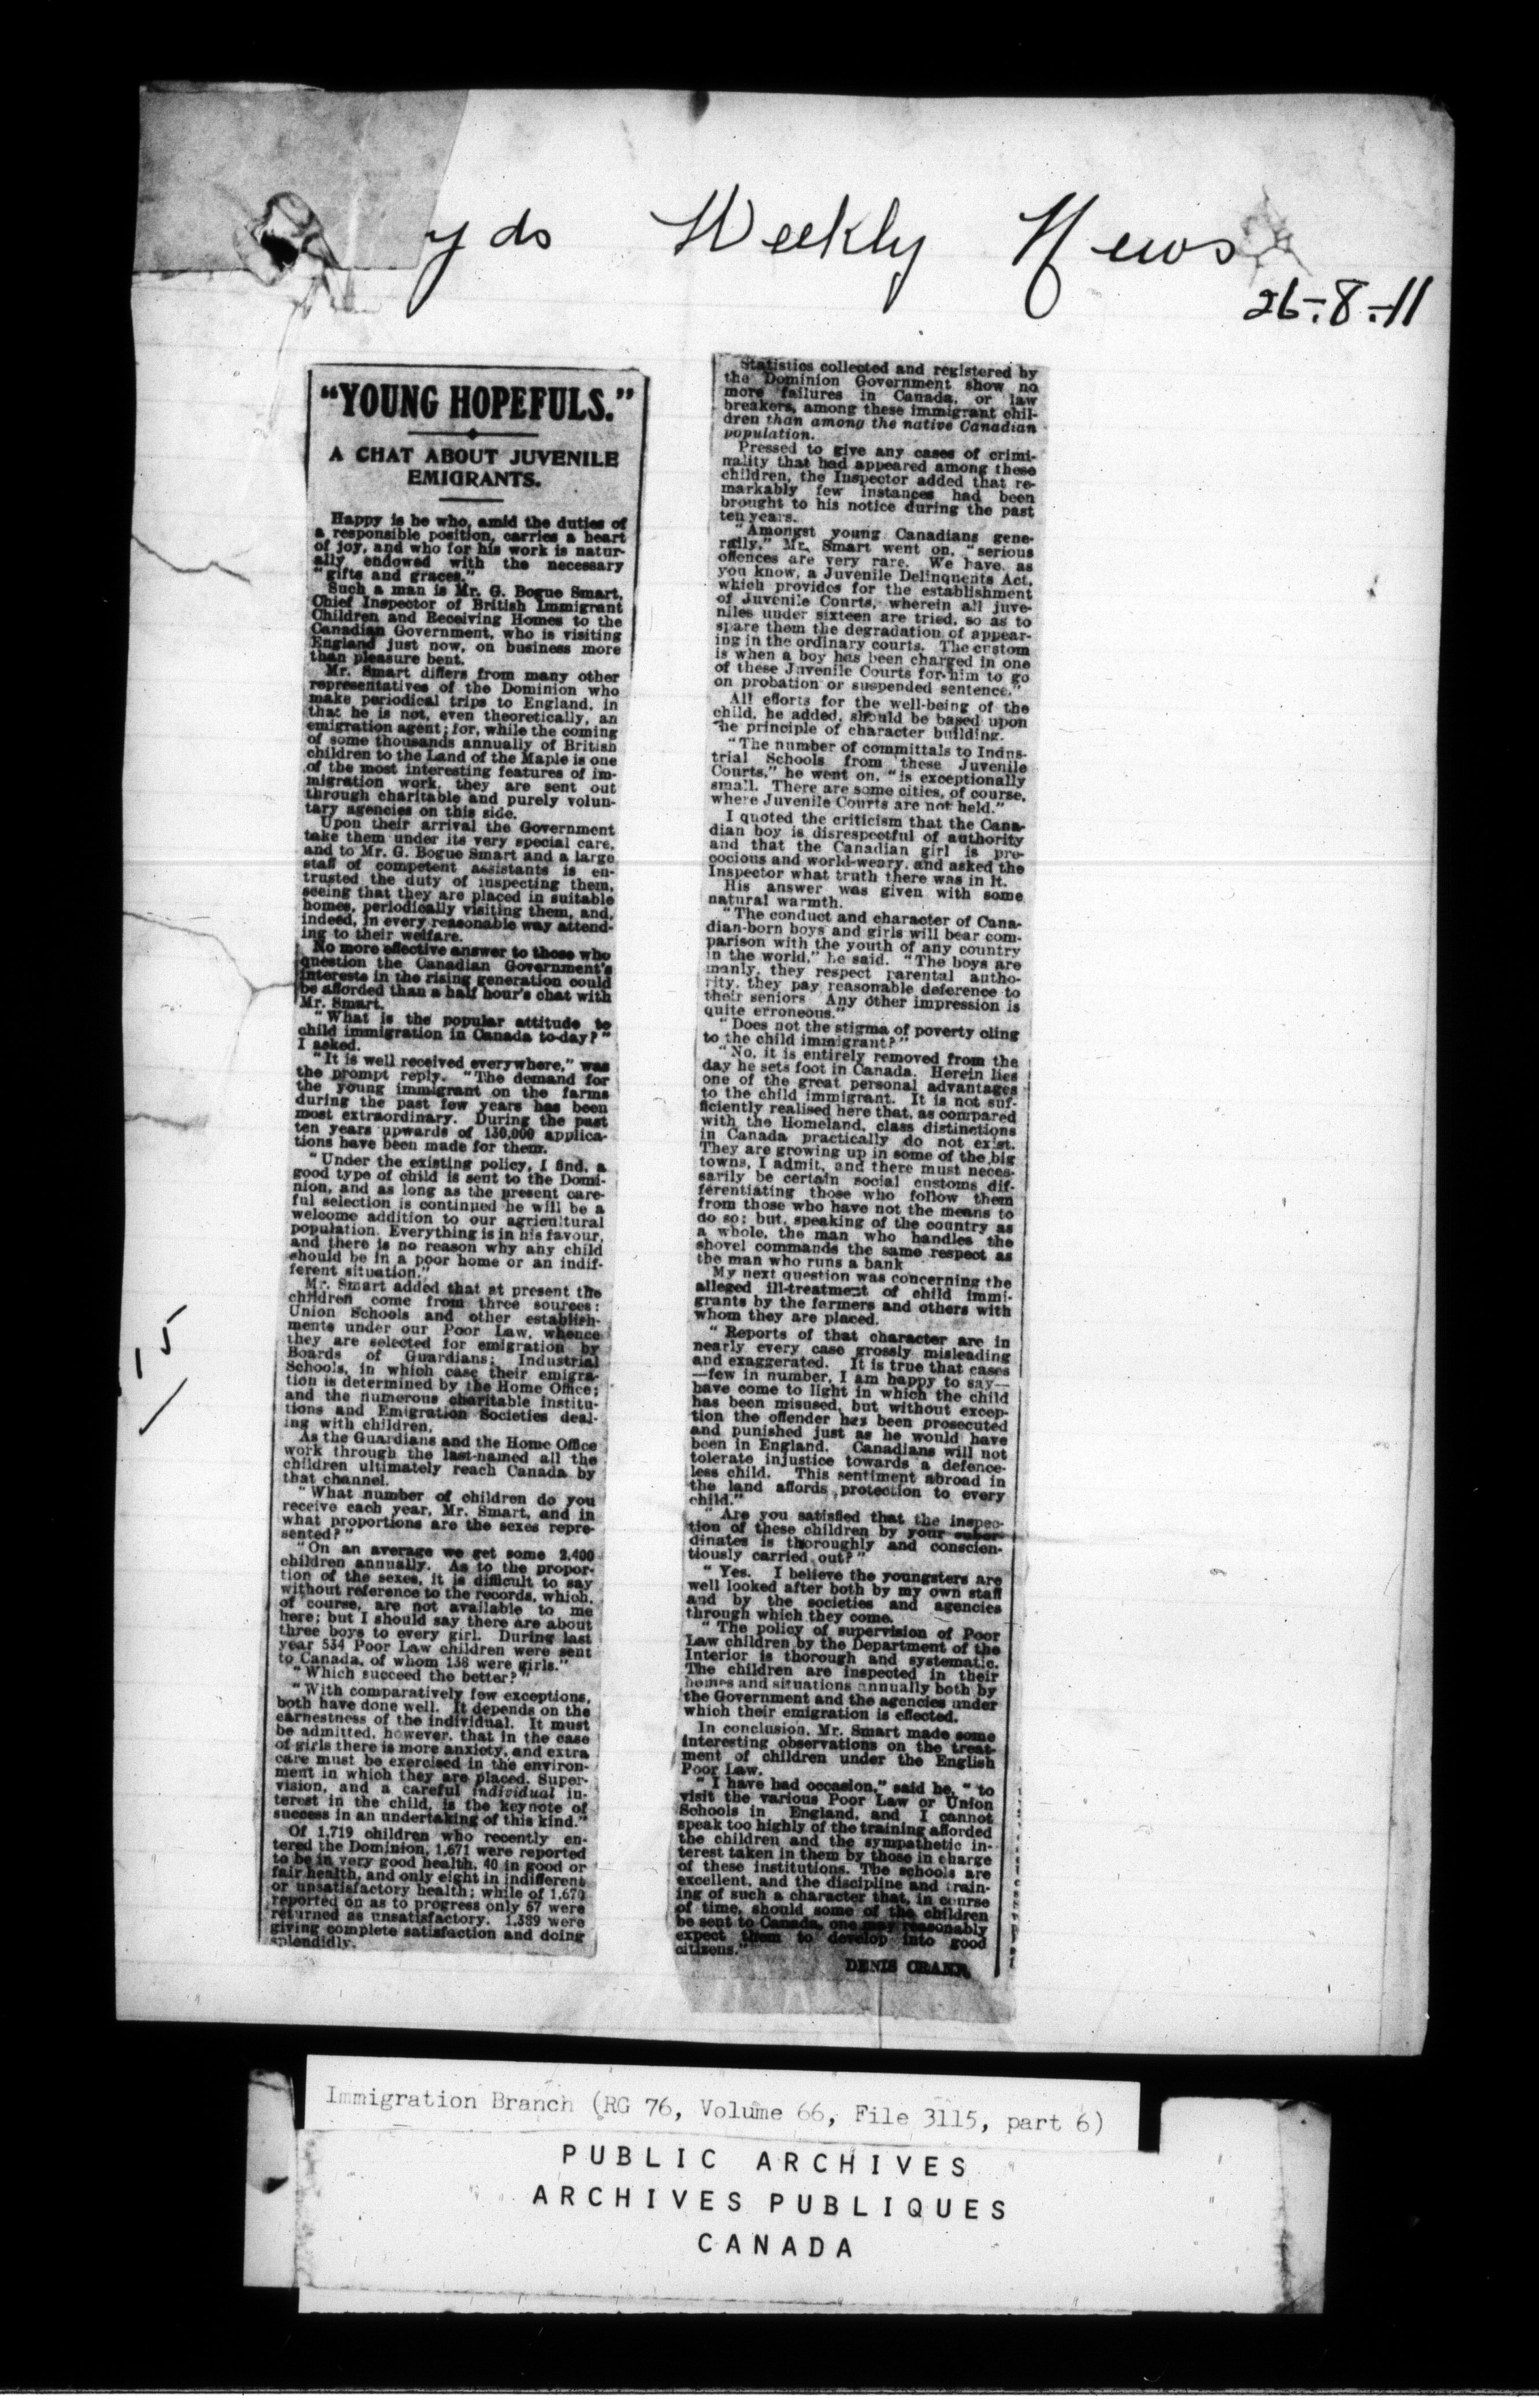 yds Weekly News
26-8-11
"YOUNG HOPEFULS."
A CHAT ABOUT JUVENILE
EMIGRANTS.
Happy is he who, amid the duties of
a responsible position, carries a heart
of joy, and who for his work is natur-
ally endowed with the necessary
"gifts and graces."
Such a man is Mr. G. Bogue Smart,
Chief Inspector of British Immigrant
Children and Receiving Homes to the
Canadian Government, who is visiting
England just now, on business more
than pleasure bent.
Mr. Smart differs from many other
representatives of the Dominion who
make periodical trips to England, in
that he is not, even theoretically, an
emigration agent; for, while the coming
of some thousands annually of British
children to the Land of the Maple is one
of the most interesting features of im-
migration work, they are sent out
through charitable and purely volun-
tary agencies on this side.
Upon their arrival the Government
take them under its very special care,
and to Mr. G. Bogue Smart and a large
staff of competent assistants is en-
trusted the duty of inspecting them,
seeing that they are placed in suitable
homes, periodically visiting them, and,
indeed, in every reasonable way attend-
ing to their welfare.
No more effective answer to those who
question the Canadian Government's
interests in the rising generation could
be afforded than a half hour's chat with
Mr. Smart.
"What is the popular attitude to
child immigration in Canada to-day?"
I asked.
"It is well received everywhere," was
the prompt reply. "The demand for
the young immigrant on the farms
during the past few years has been
most extraordinary. During the past
ten years upwards of 130,000 applica-
tions have been made for them.
"Under the existing policy, I find, a
good type of child is sent to the Domi-
nion, and as long as the present care-
ful selection is continued he will be a
welcome addition to our agricultural
population. Everything is in his favour,
and there is no reason why any child
should be in a poor home or an indif-
ferent situation."
Mr. Smart added that at present the
children come from three sources:
Union Schools and other establish-
ments under our Poor Law, whence
they are selected for emigration by
Boards of Guardians; Industrial
Schools, in which case their emigra-
tion is determined by the Home Office;
and the numerous charitable institu-
tions and Emigration Societies deal-
ing with children.
As the Guardians and the Home Office
work through the last-named all the
children ultimately reach Canada by
that channel.
"What number of children do you
receive each year, Mr. Smart, and in
what proportions are the sexes repre-
sented?"
"On an average we get some 2,400
children annually. As to the propor-
tion of the sexes, it is difficult to say
without reference to the records, which,
of course, are not available to me
here; but I should say there are about
three boys to every girl. During last
year 534 Poor Law children were sent
to Canada, of whom 138 were girls."
"Which succeed the better?"
"With comparatively few exceptions,
both have done well. It depends on the
earnestness of the individual. It must
be admitted, however, that in the case
of girls there is more anxiety, and extra
care must be exercised in the environ-
ment in which they are placed. Super-
vision, and a careful individual in-
terest in the child, is the keynote of
success in an undertaking of this kind."
Of 1,719 children who recently en-
tered the Dominion, 1,671 were reported
to be in very good health, 40 in good or
fair health, and only eight in indifferent
or unsatisfactory health; while of 1,670
reported on as to progress only 57 were
returned as unsatisfactory. 1,389 were
giving complete satisfaction and doing
splendidly.
Statistics collected and registered by
the Dominion Government show no
more failures in Canada, or law
breakers, among these immigrant chil-
dren than among the native Canadian
population.
Pressed to give any cases of crimi-
nality that had appeared among these
children, the Inspector added that re-
markably few instances had been
brought to his notice during the past
ten years.
"Amongst young Canadians gene-
rally," Mr. Smart went on, "serious
offences are very rare. We have, as
you know, a Juvenile Delinquents Act,
which provides for the establishment
of Juvenile Courts, wherein all juve-
niles under sixteen are tried, so as to
spare them the degradation of appear-
ing in the ordinary courts. The custom
is when a boy has been charged in one
of these Juvenile Courts for him to go
on probation or suspended sentence."
All efforts for the well-being of the
child, he added, should be based upon
the principle of character building.
"The number of committals to Indus-
trial Schools from these Juvenile
Courts," he went on, "is exceptionally
small. There are some cities, of course,
where Juvenile Courts are not held."
I quoted the criticism that the Cana-
dian boy is disrespectful of authority
and that the Canadian girl is pre-
cocious and world-weary, and asked the
Inspector what truth there was in it.
His answer was given with some
natural warmth.
"The conduct and character of Cana-
dian-born boys and girls will bear com-
parison with the youth of any country
in the world," he said. "The boys are
manly, they respect parental autho-
rity, they pay reasonable deference to
their seniors. Any other impression is
quite erroneous."
"Does not the stigma of poverty cling
to the child immigrant?"
"No, it is entirely removed from the
day he sets foot in Canada. Herein lies
one of the great personal advantages
to the child immigrant. It is not suf-
ficiently realised here that, as compared
with the Homeland, class distinctions
in Canada practically do not exist.
They are growing up in some of the big
towns, I admit, and there must neces-
sarily be certain social customs dif-
ferentiating those who follow them
from those who have not the means to
do so; but, speaking of the country as
a whole, the man who handles the
shovel commands the same respect as
the man who runs a bank
My next question was concerning the
alleged ill-treatment of child immi-
grants by the farmers and others with
whom they are placed.
"Reports of that character are in
nearly every case grossly misleading
and exaggerated. It is true that cases
—few in number, I am happy to say—
have come to light in which the child
has been misused, but without excep-
tion the offender has been prosecuted
and punished just as he would have
been in England. Canadians will not
tolerate injustice towards a defence-
less child. This sentiment abroad in
the land affords protection to every
child."
"Are you satisfied that the inspec-
tion of these children by your subor-
dinates is thoroughly and conscien-
tiously carried out?"
"Yes. I believe the youngsters are
well looked after both by my own staff
and by the societies and agencies
through which they come.
"The policy of supervision of Poor
Law children by the Department of the
Interior is thorough and systematic.
The children are inspected in their
homes and situations annually both by
the Government and the agencies under
which their emigration is effected.
In conclusion, Mr. Smart made some
interesting observations on the treat-
ment of children under the English
Poor Law.
"I have had occasion," said he, "to
visit the various Poor Law or Union
Schools in England, and I cannot
speak too highly of the training afforded
the children and the sympathetic in-
terest taken in them by those in charge
of these institutions. The schools are
excellent, and the discipline and train-
ing of such a character that, in course
of time, should some of the children
be sent to Canada, one may reasonably
expect them to develop into good
citizens."
DENIS CRANE
15
Immigration Branch (RG 76, Volume 66, File 3115, part 6)
PUBLIC ARCHIVES
ARCHIVES PUBLIQUES
CANADA